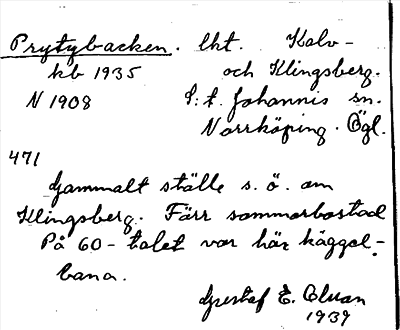 Prytybacken. lht. Kalv-
kb 1935 och Klingsberg.
N 1908 S:t. Johannis sn.
Norrköping. Ögl.
471
Gammalt ställe s. ö. om
Klingsberg. Förr sommarbostad
På 60-talet var här käggel-
bana.
Gustaf E. Cluan
1939